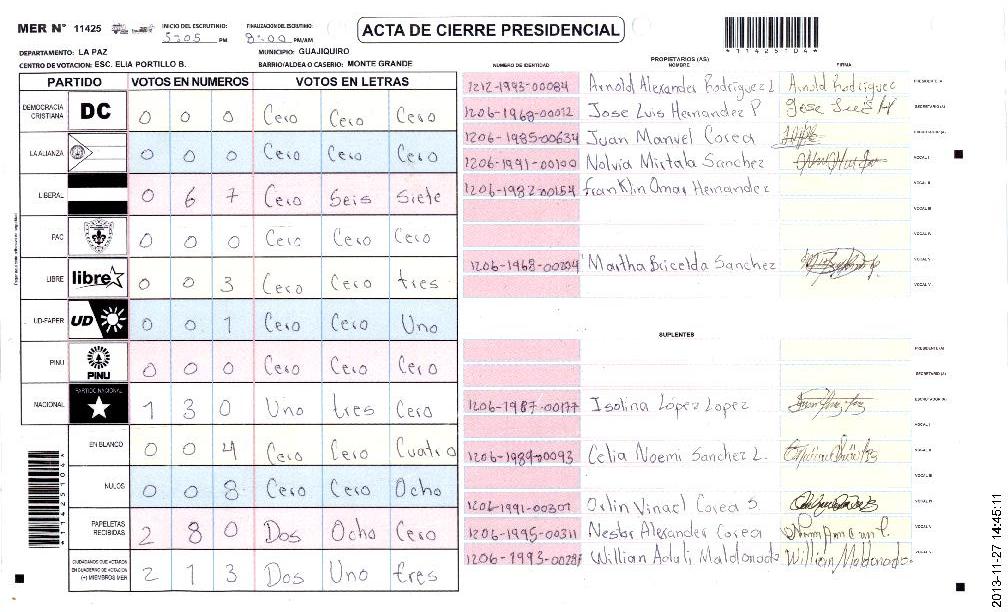 MER N° 11425 INICIO DEL ESCRUTINIO: 5:05 PM FINALIZACION DEL ESCRUTINIO: 8:00 PM/AM
ACTA DE CIERRE PRESIDENCIAL
*11425104*
DEPARTAMENTO: LA PAZ MUNICIPIO: GUAJIQUIRO
CENTRO DE VOTACION: ESC. ELIA PORTILLO B. BARRIO/ALDEA O CASERIO: MONTE GRANDE
PARTIDO VOTOS EN NUMEROS VOTOS EN LETRAS
DEMOCRACIA CRISTIANA DC 0 0 0 Cero Cero Cero
LA ALIANZA 0 0 0 Cero Cero Cero
LIBERAL 0 6 7 Cero Seis Siete
PAC 0 0 0 Cero Cero Cero
LIBRE libre 0 0 3 Cero Cero tres
UD-FAPER UD 0 0 1 Cero Cero Uno
PINU PINU 0 0 0 Cero Cero Cero
NACIONAL PARTIDO NACIONAL 1 3 0 Uno tres Cero
EN BLANCO 0 0 4 Cero Cero Cuatro
NULOS 0 0 8 Cero Cero Ocho
PAPELETAS RECIBIDAS 2 8 0 Dos Ocho Cero
CIUDADANOS QUE VOTARON EN CUADERNO DE VOTACION (+) MIEMBROS MER 2 1 3 Dos Uno tres
*11425104*
PROPIETARIOS (AS)
NUMERO DE IDENTIDAD NOMBRE FIRMA
1212-1993-00084 Arnold Alexander Rodriguez L Arnold Rodriguez PRESIDENTE/A
1206-1968-00012 Jose Luis Hernandez P Jose Luis H SECRETARIO(A)
1206-1985-00634 Juan Manuel Corea ESCRUTADOR(A)
1206-1991-00100 Nolvia Mirtala Sanchez VOCAL I
1206-1982-00154 Franklin Omar Hernandez VOCAL II
VOCAL III
VOCAL IV
1206-1968-00204 Martha Bricelda Sanchez VOCAL V
SUPLENTES
PRESIDENTE(A)
SECRETARIO(A)
1206-1987-00177 Isolina López Lopez ESCRUTADOR(A)
VOCAL I
1206-1989-0093 Celia Noemi Sanchez L. VOCAL II
VOCAL III
1206-1991-00307 Orlin Vinael Corea S. VOCAL IV
1206-1995-00311 Nestor Alexander Corea VOCAL V
1206-1993-00287 Willian Aduli Maldonado William Maldonado
2013-11-27 14:45:11